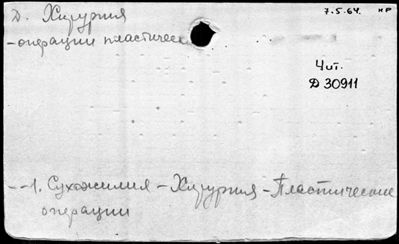 Д. Хирургия
7.5.64. НР
-операции пластическ
Чит.
Д 30911
--1. Сухожилия - Хирургия - Пластические
операции